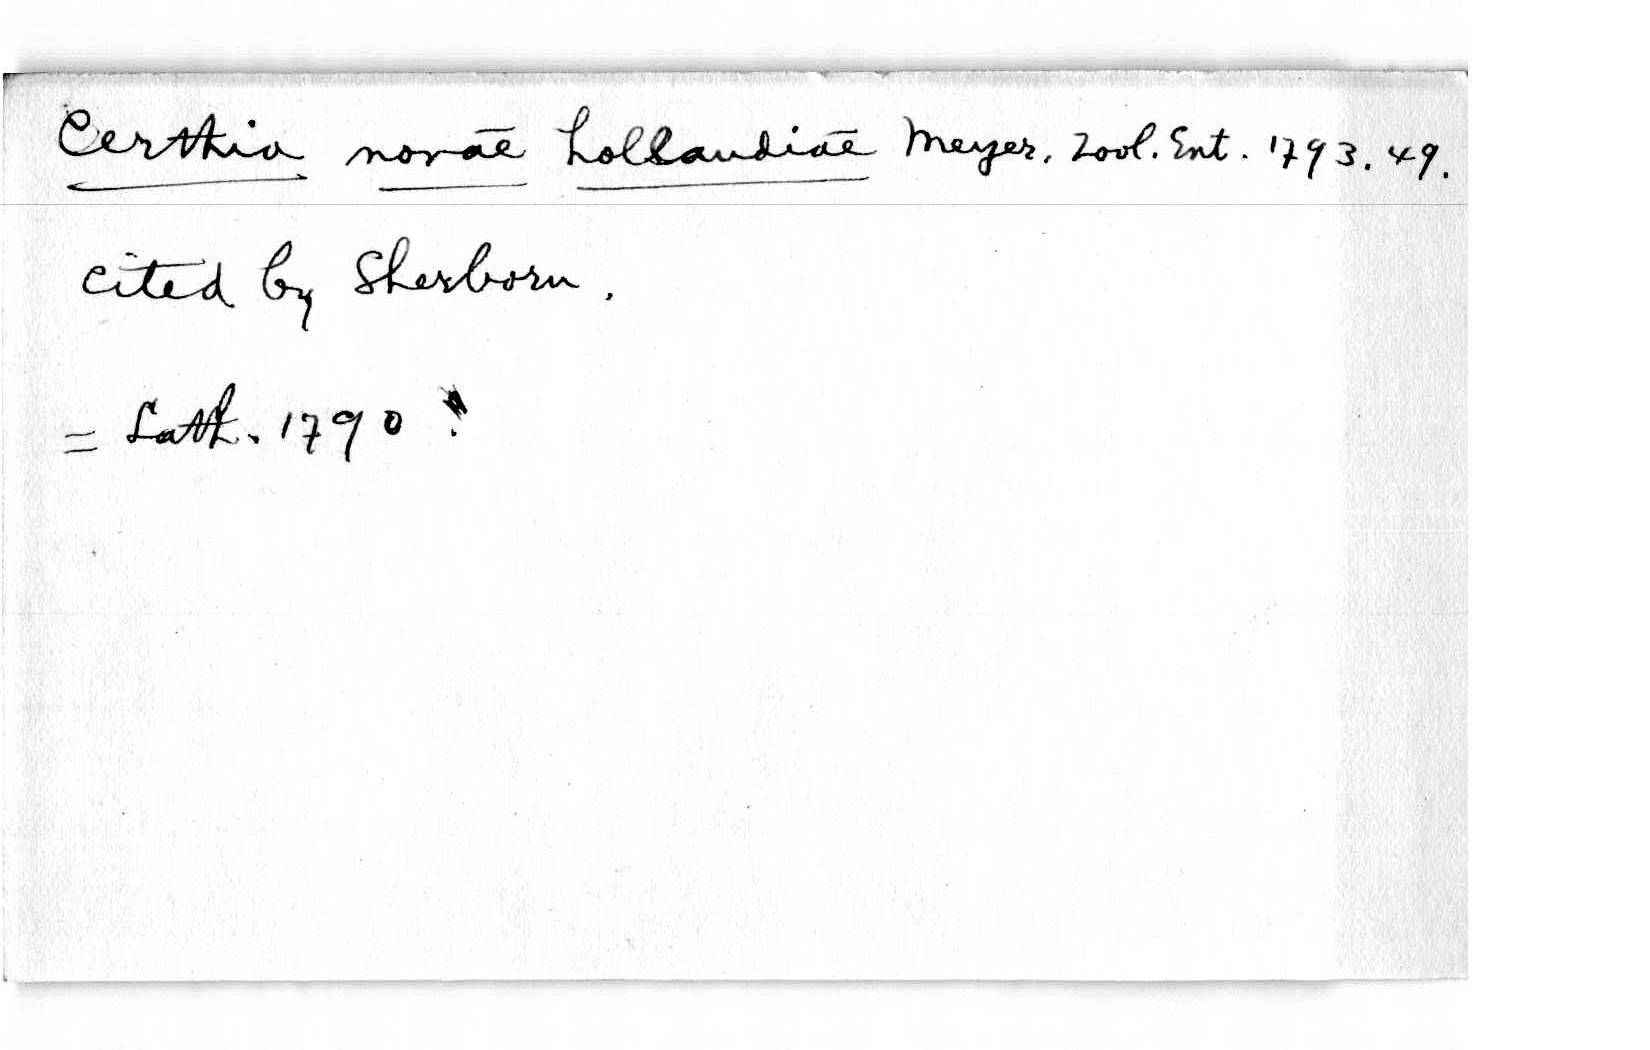 Certhia novae hollandiae Meyer, Zool. Ent. 1793. 49.
cited by Sherborn.
= Lath. 1790 ?